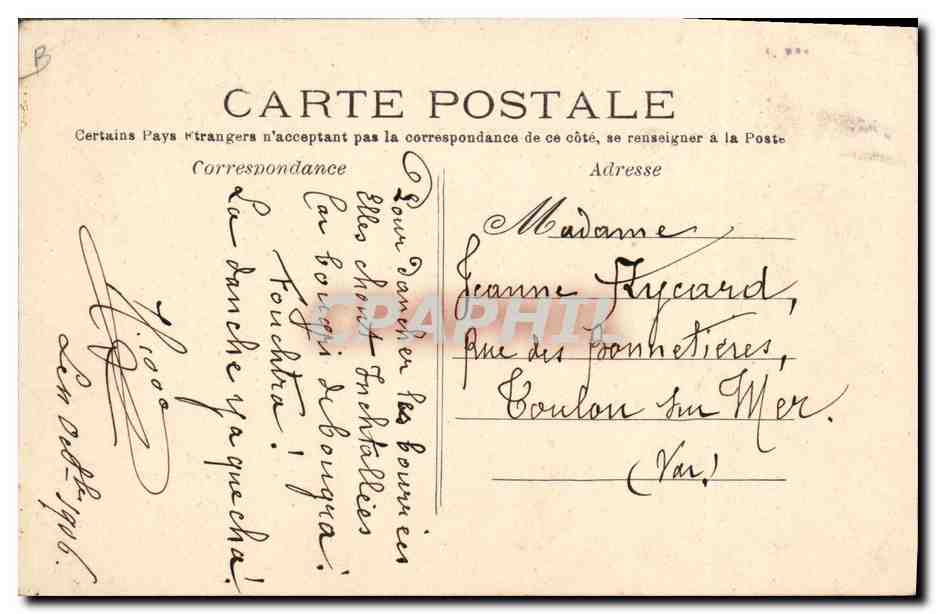 B
CARTE POSTALE
Certains Pays Etrangers n'acceptant pas la correspondance de ce côté, se renseigner à la Poste
Correspondance
Adresse
Pour dancher les bourrées
Elles chont Inchtallées
Car bougri de bougra!
Fouchtra!
La danche y a que cha!
Oct 1906.
Madame
Jeanne Rycard,
Rue des Bonnetières,
Toulon sur Mer.
(Var!)
CPAPHIL